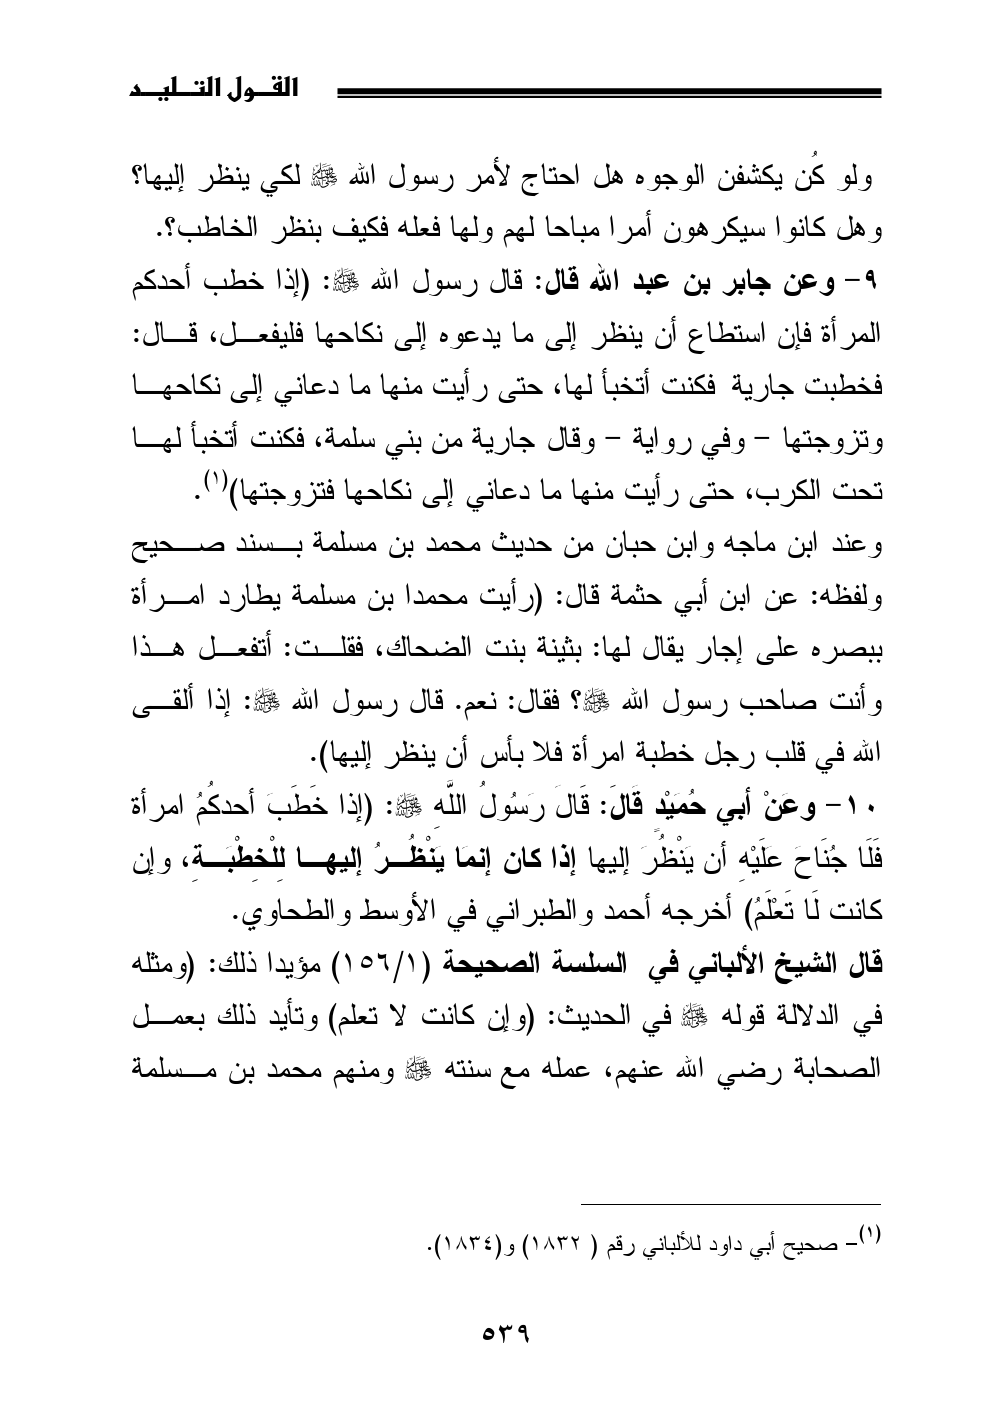 القـول التـليـد
ولو كُن يكشفن الوجوه هل احتاج لأمر رسول الله ﷺ لكي ينظر إليها؟
وهل كانوا سيكرهون أمرا مباحا لهم ولها فعله فكيف بنظر الخاطب؟.
٩- وعن جابر بن عبد الله قال: قال رسول الله ﷺ: (إذا خطب أحدكم
المرأة فإن استطاع أن ينظر إلى ما يدعوه إلى نكاحها فليفعـــل، قـــال:
فخطبت جارية فكنت أتخبأ لها، حتى رأيت منها ما دعاني إلى نكاحهـــا
وتزوجتها - وفي رواية - وقال جارية من بني سلمة، فكنت أتخبأ لهـــا
تحت الكرب، حتى رأيت منها ما دعاني إلى نكاحها فتزوجتها)(١).
وعند ابن ماجه وابن حبان من حديث محمد بن مسلمة بـــسند صـــحيح
ولفظه: عن ابن أبي حثمة قال: (رأيت محمدا بن مسلمة يطارد امـــرأة
ببصره على إجار يقال لها: بثينة بنت الضحاك، فقلـــت: أتفعـــل هـــذا
وأنت صاحب رسول الله ﷺ؟ فقال: نعم. قال رسول الله ﷺ: إذا ألقـــى
الله في قلب رجل خطبة امرأة فلا بأس أن ينظر إليها).
١٠- وعَنْ أبي حُمَيْدٍ قَالَ: قَالَ رَسُولُ اللَّهِ ﷺ: (إذا خَطَبَ أحدكُمُ امرأة
فَلَا جُنَاحَ عَلَيْهِ أن يَنْظُرَ إليها إذا كان إنمَا يَنْظُـــرُ إليهـــا لِلْخِطْبَـــةِ، وإن
كانت لَا تَعْلَمُ) أخرجه أحمد والطبراني في الأوسط والطحاوي.
قال الشيخ الألباني في السلسة الصحيحة (١٥٦/١) مؤيدا ذلك: (ومثله
في الدلالة قوله ﷺ في الحديث: (وإن كانت لا تعلم) وتأيد ذلك بعمـــل
الصحابة رضي الله عنهم، عمله مع سنته ﷺ ومنهم محمد بن مـــسلمة
(١)- صحيح أبي داود للألباني رقم ( ١٨٣٢) و(١٨٣٤).
٥٣٩